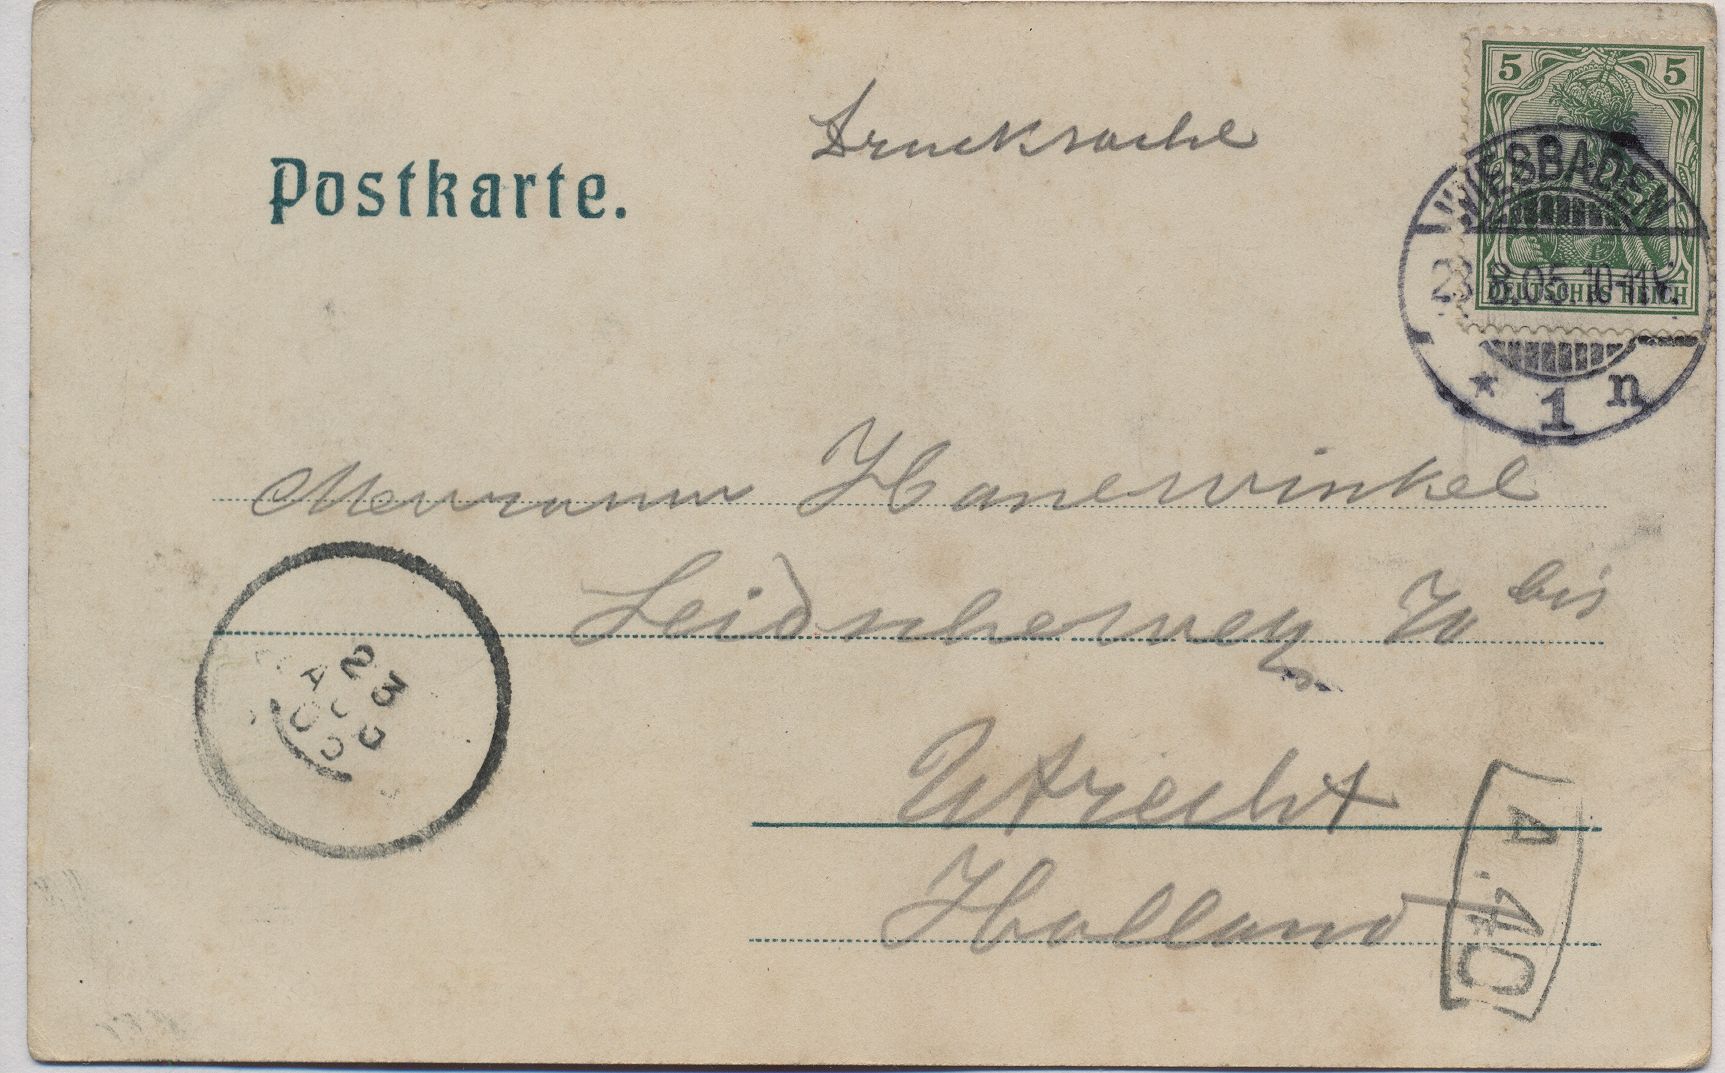 Drucksache
Postkarte.
5 5
DEUTSCHES REICH
WIESBADEN
23.8.05.10-11V.
* 1 n
Mevrouw Hanewinkel
Leidscheweg bis
Utrecht
Holland
23
A.40